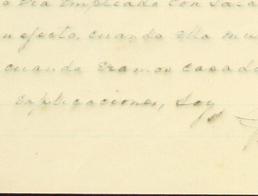 empleado con
efecto, cuando ella
cuando eramos casado
explicaciones, soy